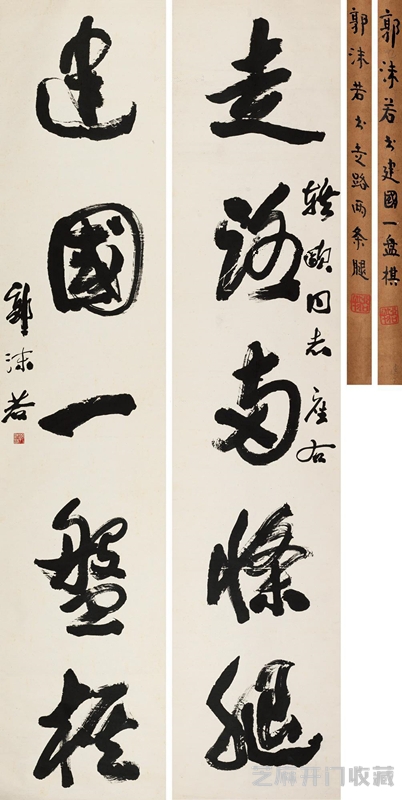 郭沫若书建國一盘棋
郭沫若书走路两条腿
走路兩條腿
同志座右
建國一盤棋
郭沫若
芝麻开门收藏